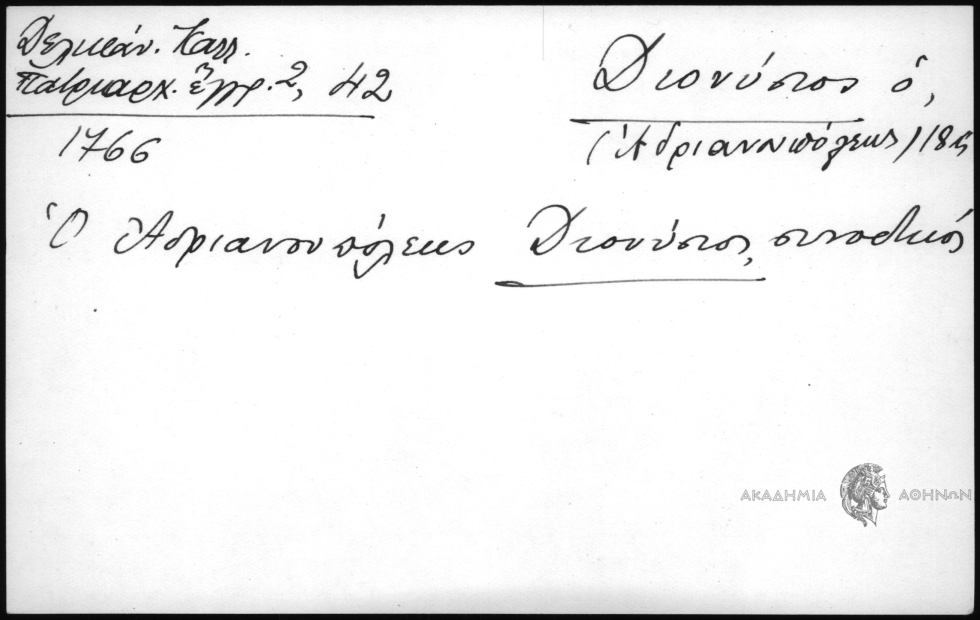 Δελικάν. Καλλ.
Πατριαρχ. ἔγγρ. 2, 42
1766
Διονύσιος ὁ,
(Ἀδριανουπόλεως) 18
Ὁ Ἀδριανουπόλεως Διονύσιος, συνοδικός
ΑΚΑΔΗΜΙΑ ΑΘΗΝΩΝ